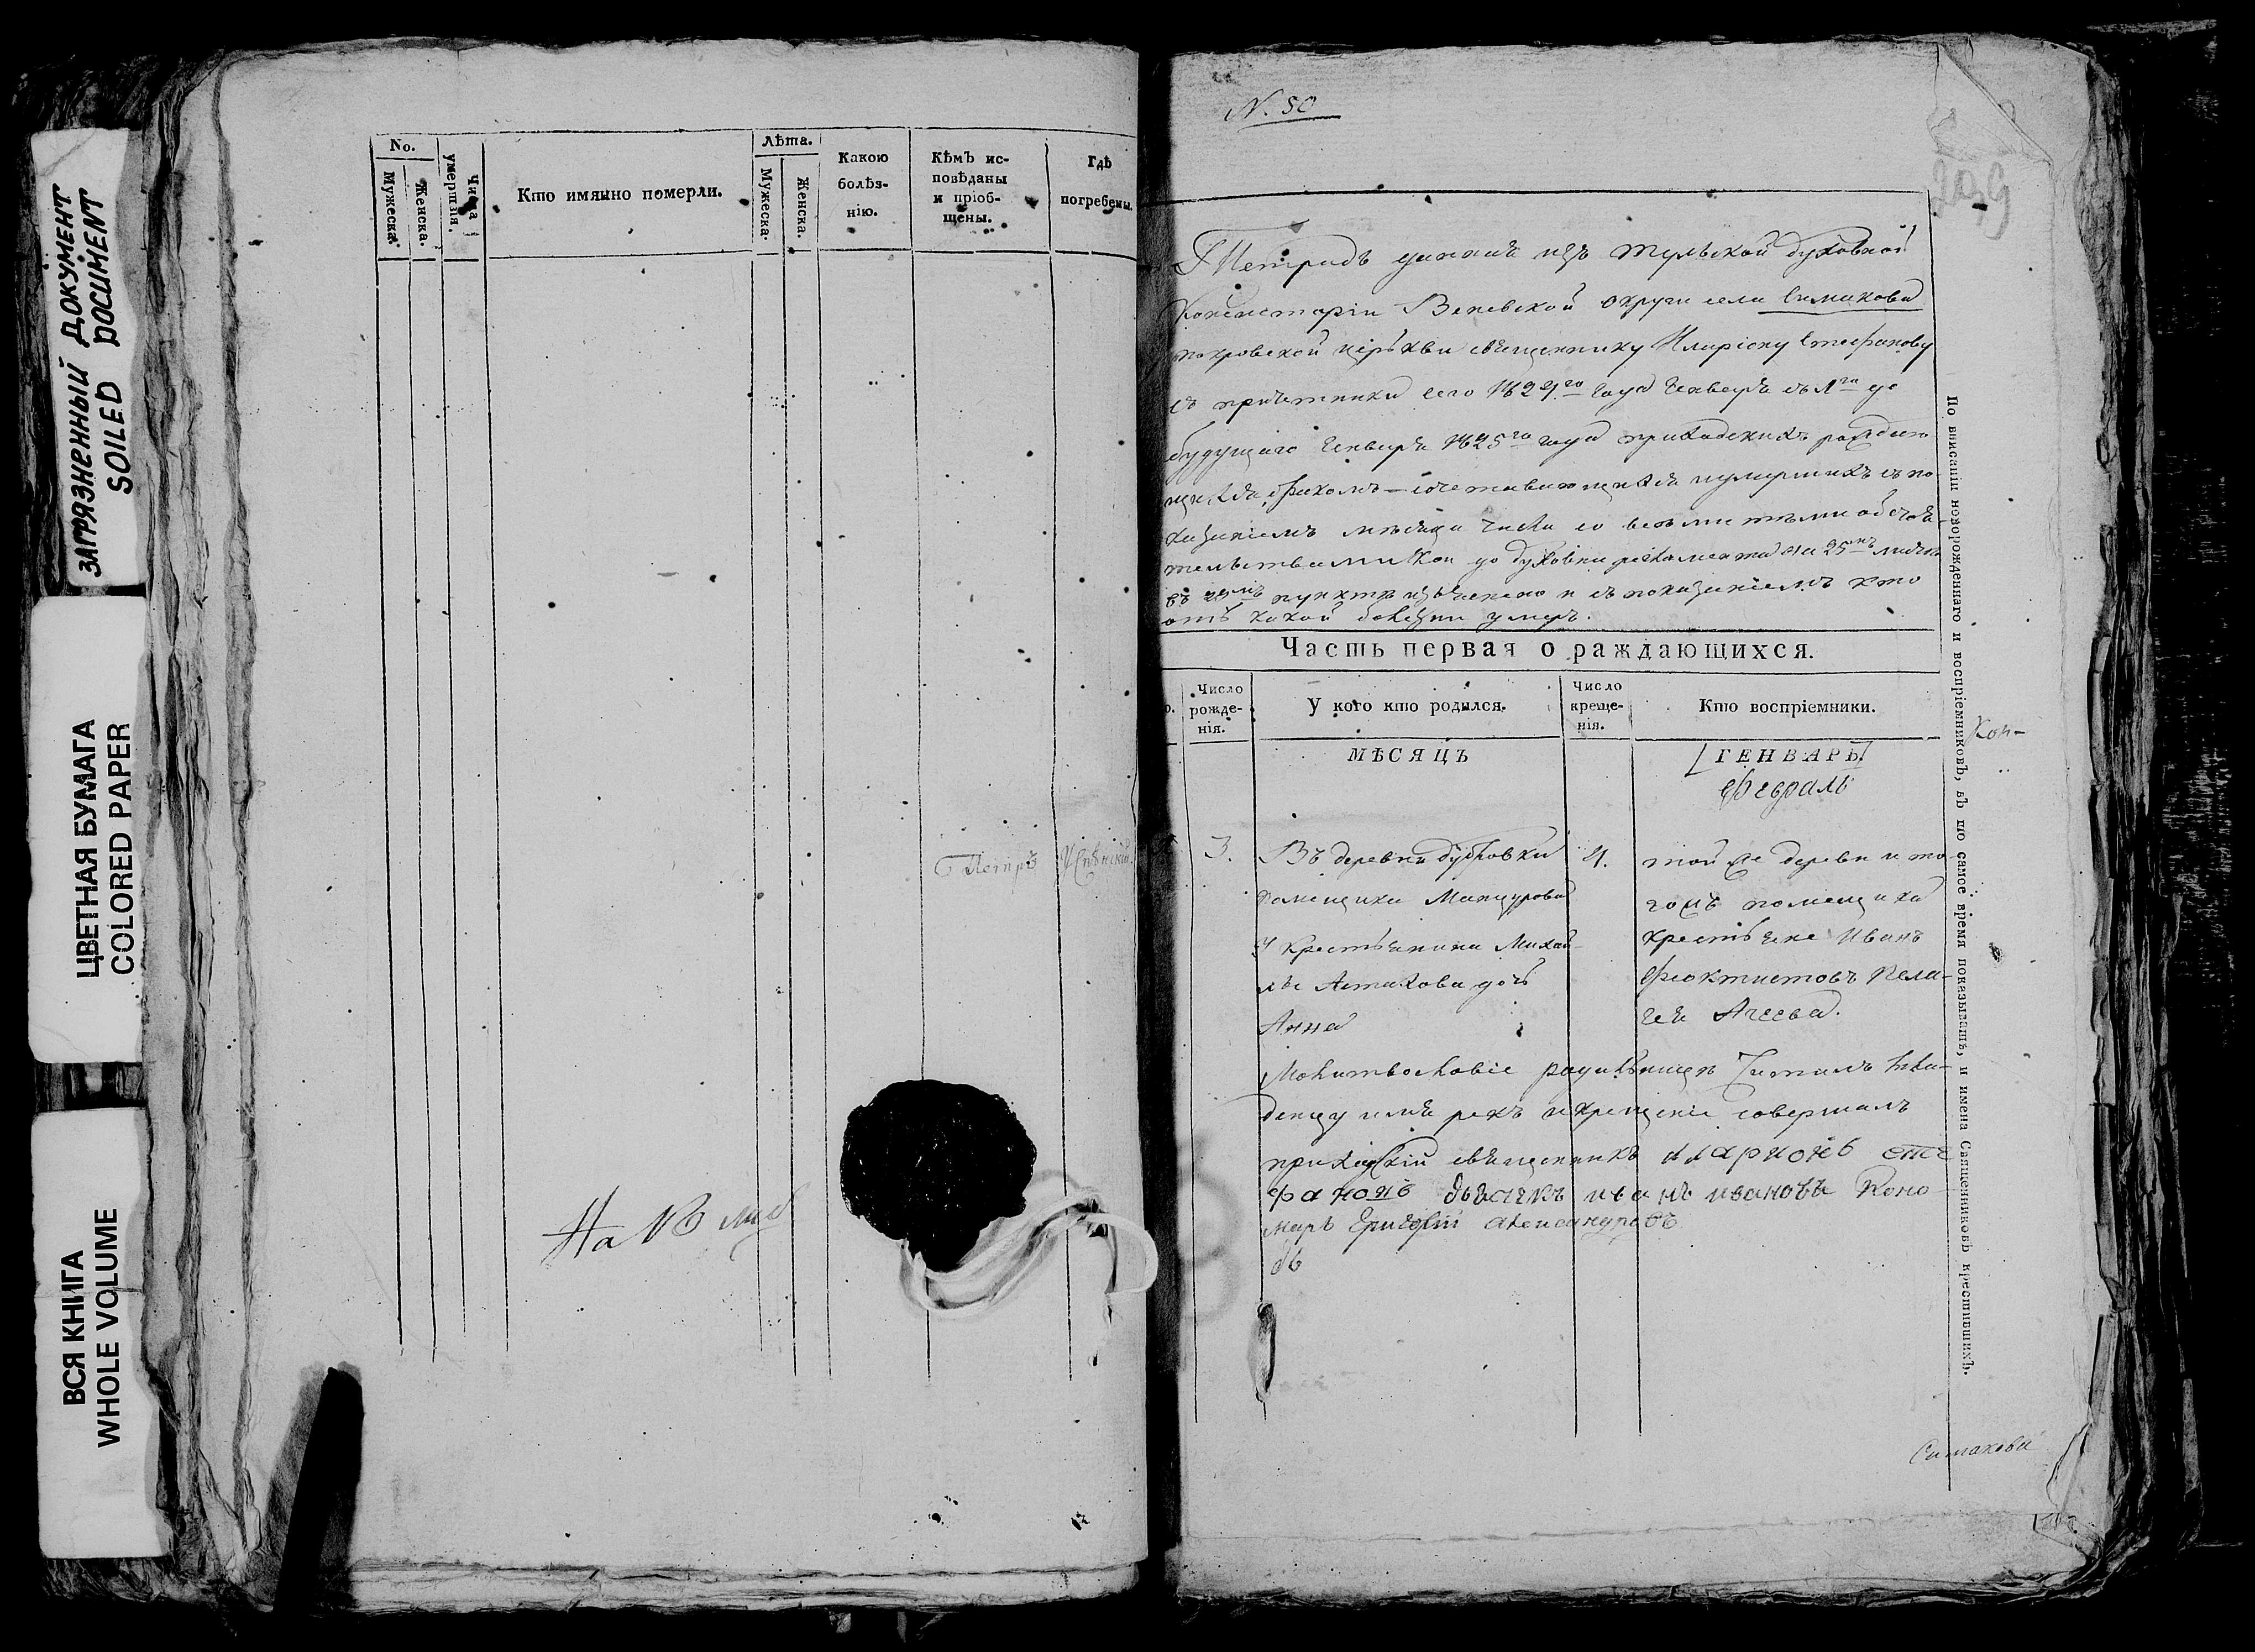 ЗАГРЯЗНЕННЫЙ ДОКУМЕНТ
SOILED DOCUMENT
ЦВЕТНАЯ БУМАГА
COLORED PAPER
ВСЯ КНИГА
WHOLE VOLUME
No.
Мужеска.
Женска.
Числа умершія.
Кто имянно померли.
Лѣта.
Мужеска.
Женска.
Какою
болѣз-
нію.
Кѣмъ ис-
повѣданы
и пріоб-
щены.
Гдѣ
погребены.
Петръ Успѣнскій
На 10 ли
N. 50
209
Тетрадь данная изъ Тульской духовной
Консисторіи Веневской округи села Симахова
покровской церькви священнику Иларіону Стефанову
съ причетники сего 1824го года Генваря съ 1го до
будущаго Генваря 1825го года приходскихъ раждаю
щихся, бракомъ сочетавающихся и умершихъ съ по-
казаніемъ мѣсяца числа со всѣми тѣми обстоя-
тельствами кои до духовнаго регламента на 25мъ листѣ
въ мъ пунктѣ изъяснено и съ показаніемъ кто
отъ какой болезни умеръ.
Часть первая о раждающихся.
о.
Число
рожде-
нія.
У кого кто родился.
Число
креще-
нія.
Кто воспріемники.
МѢСЯЦЪ
[ГЕНВАРЬ]
Февраль
3.
Въ деревни дубровки
помещика Мансурова
у крестьянина Михай-
лы Астахова дочь
Анна
4.
той же деревн и то
гожъ помещика
крестьяне Иванъ
Феоктистовъ Пела-
гея Агеева.
Молитвословіе родильницѣ читалъ мла-
денцу имя рекъ и крещеніе совершалъ
приходскій священникъ иларионъ сте
фановъ дьячекъ иванъ ивановъ Поно
марь Григорій александровъ
По вписаніи новорожденнаго и воспріемниковъ, въ то самое время показывать, и имена Священниковъ крестившихъ.
Кон-
Симахова